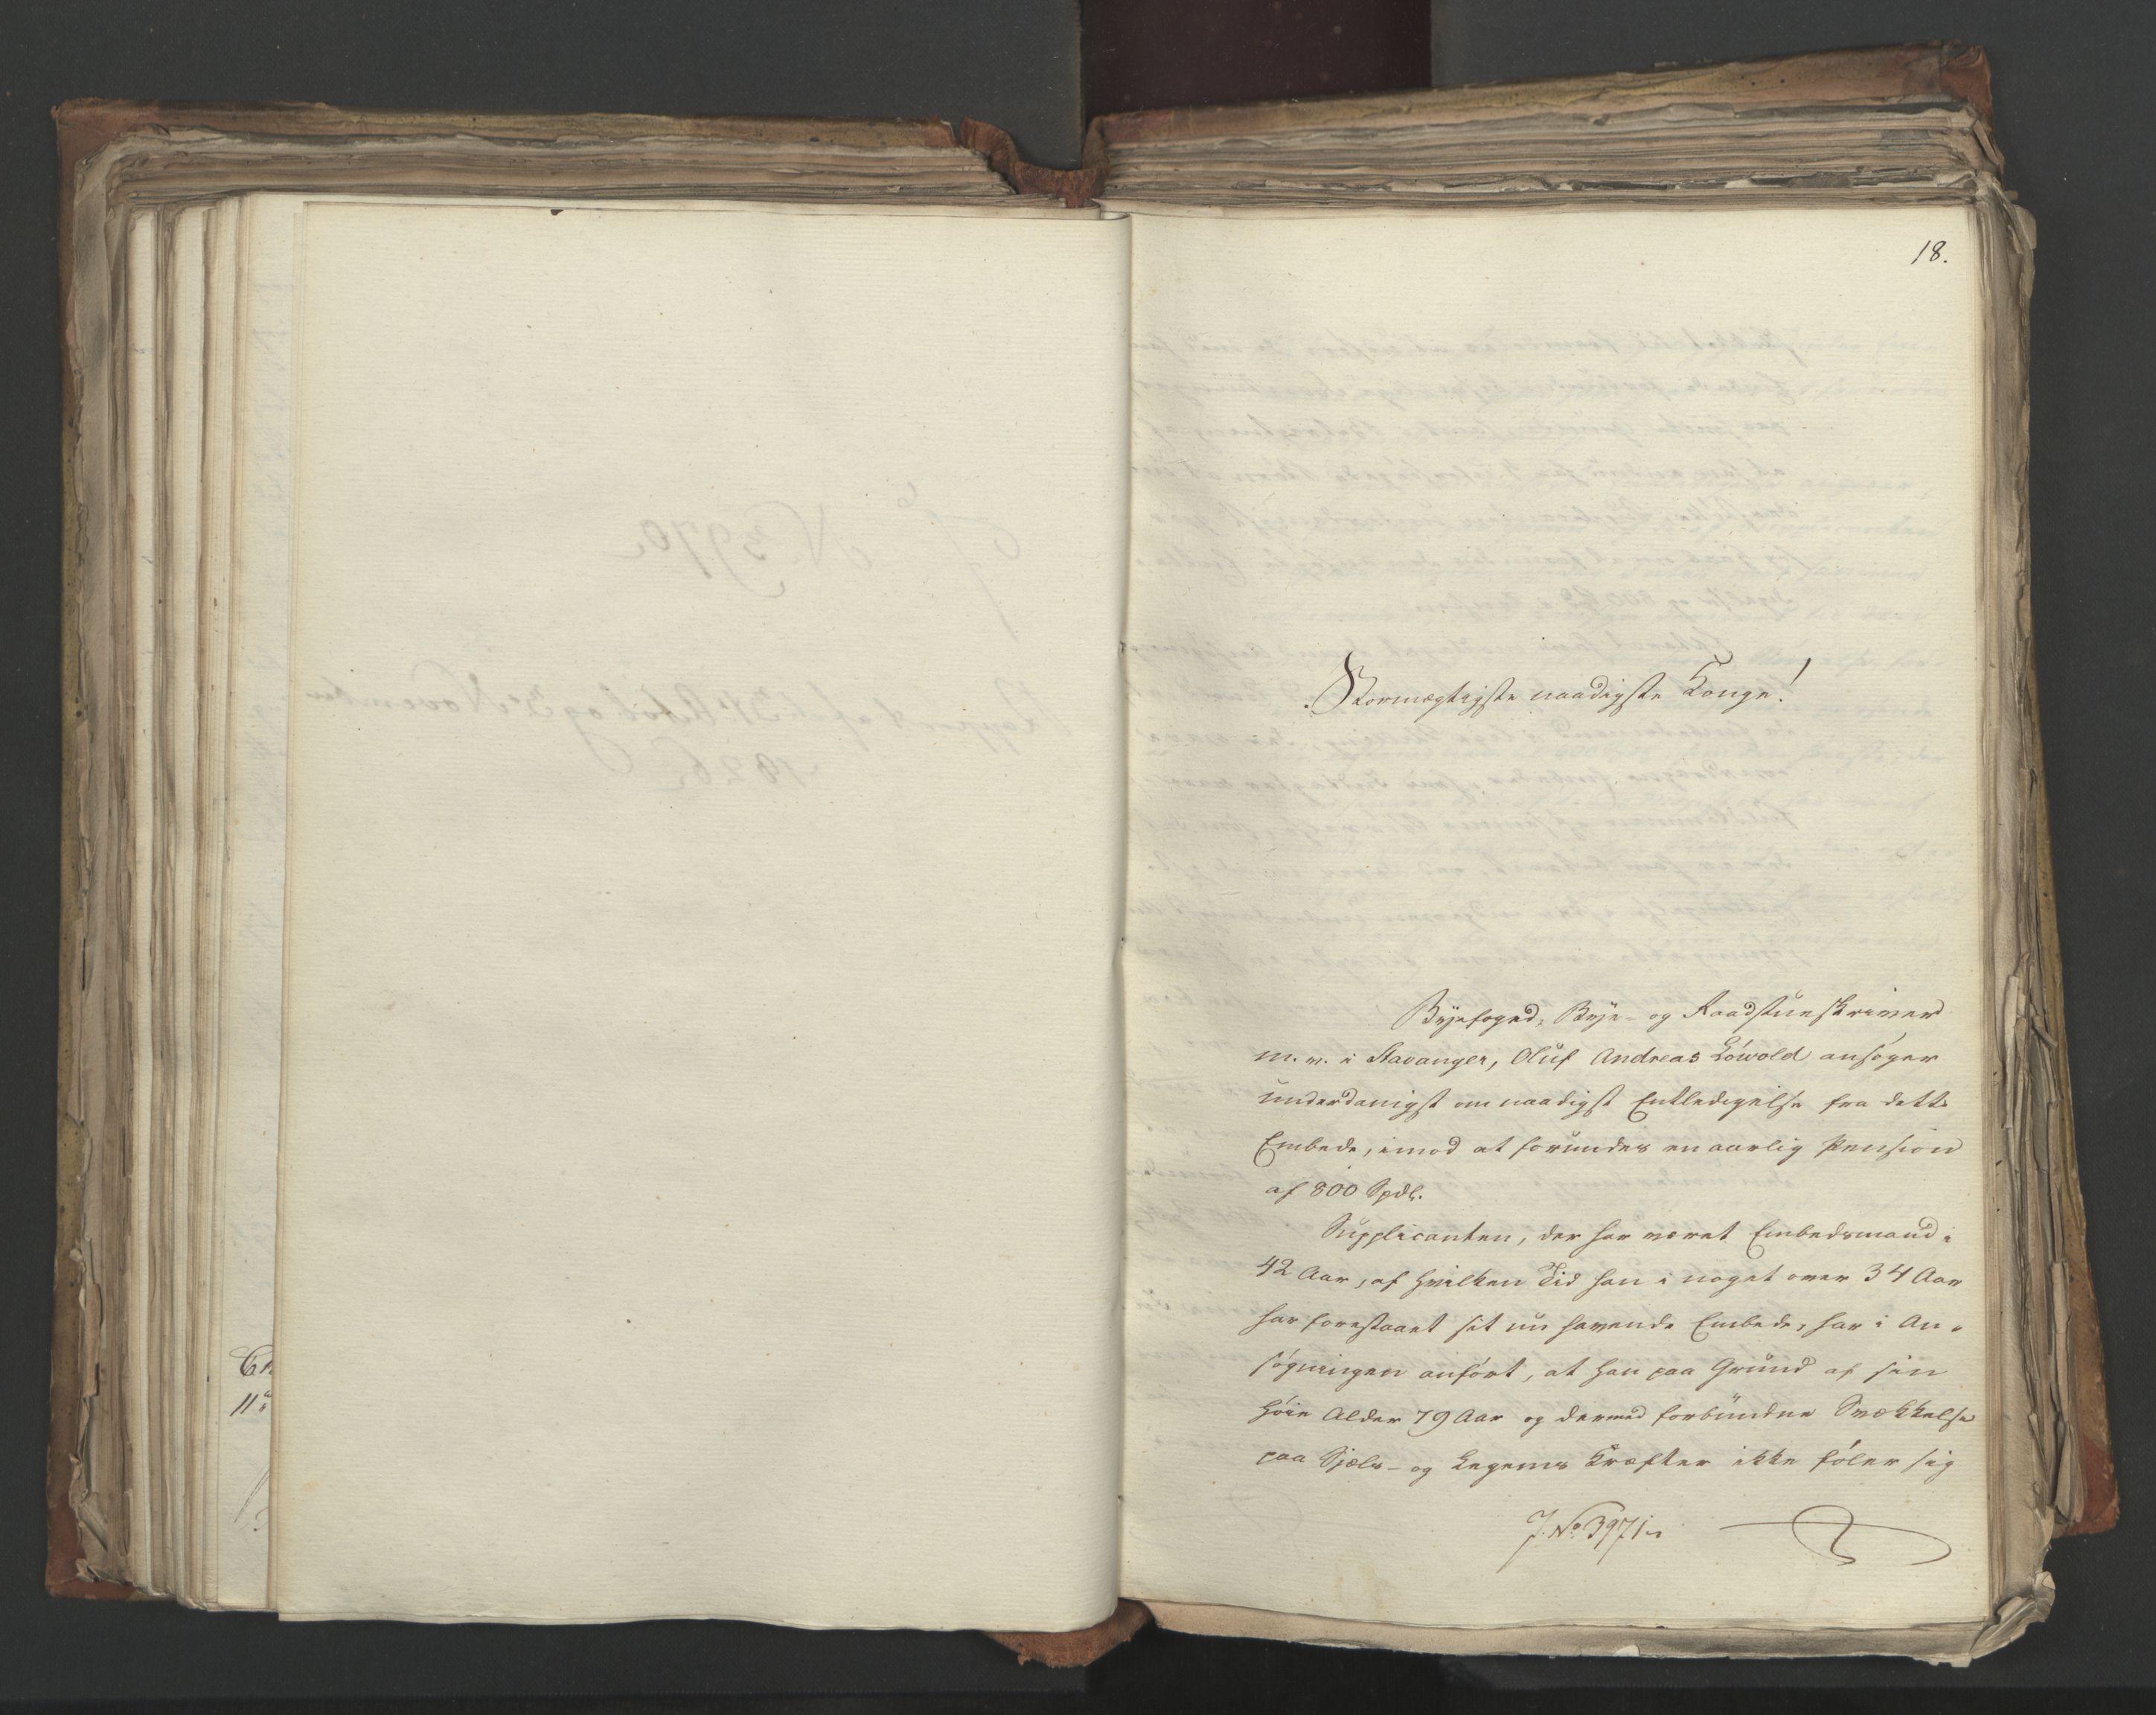 18.
Stormægtigste naadigste Konge!
Byefoged, Bye- og Raadstueskriver
m. v. i Stavanger, Oluf Andreas Löwold ansøger
underdanigst om naadigst Entledigelse fra dette
Embede, imod at forundes en aarlig Pension
af 800 Spdlr.
Supplicanten, der har været Embedsmand i
42 Aar, af hvilken Tid han i noget over 34 Aar
har forestaaet sit nu havende Embede, har i An-
søgningen anført, at han paa Grund af sin
høie Alder 79 Aar og dermed forbundne Svækkelse
paa Sjæls- og Legems Kræfter ikke føler sig
J. No 3971